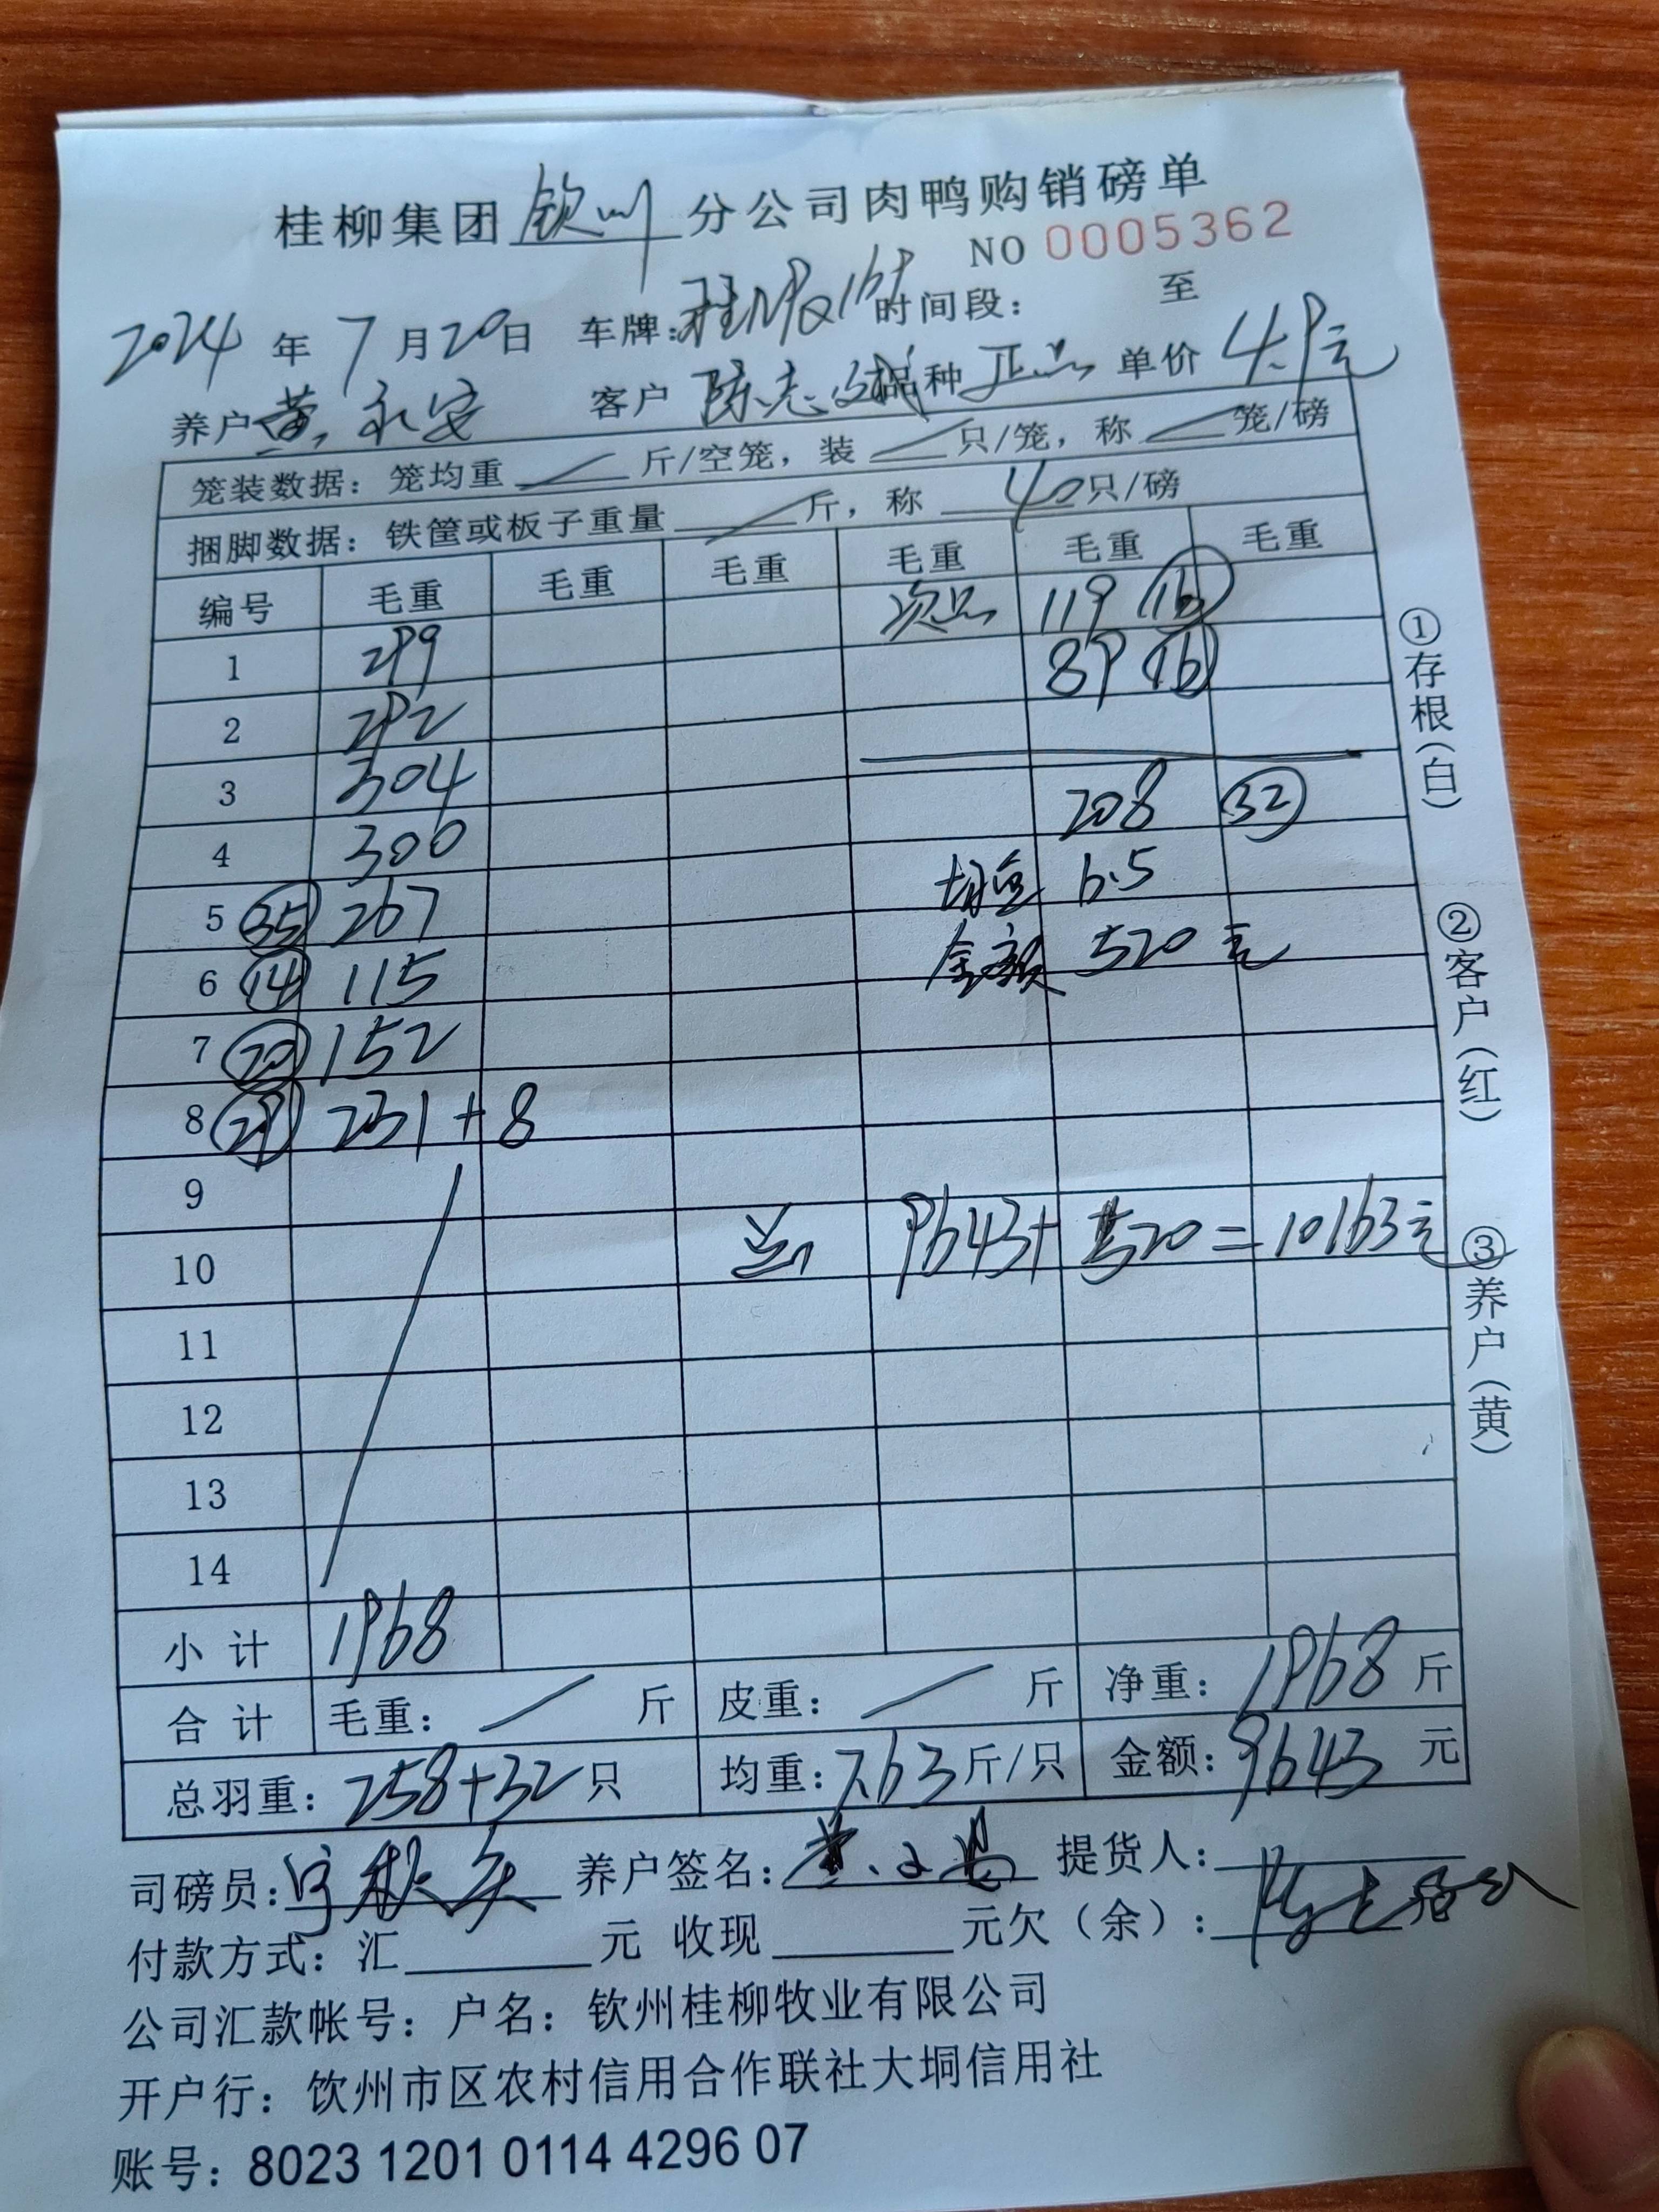 桂柳集团钦州分公司肉鸭购销磅单
NO 0005362
2024年7月20日 车牌: 时间段: 至
养户 黄永安 客户 陈志斌 品种 正品 单价 4.9元
笼装数据: 笼均重 / 斤/空笼, 装 / 只/笼, 称 / 笼/磅
捆脚数据: 铁筐或板子重量 / 斤, 称 40 只/磅
编号 毛重 毛重 毛重 毛重 毛重 毛重
次品 119 16
1 299 89 16
2 292
3 304 208 32
4 300 均重 6.5
5 35 267 金额 520元
6 14 115
7 20 152
8 29 231+8
9
10 总 9643+520=10163元
11
12
13
14
小计 1968
合计 毛重: / 斤 皮重: / 斤 净重: 1968 斤
总羽重: 258+32 只 均重: 7.63 斤/只 金额: 9643 元
司磅员: 养户签名: 提货人:
付款方式: 汇 元 收现 元欠(余):
公司汇款帐号: 户名: 钦州桂柳牧业有限公司
开户行: 钦州市区农村信用合作联社大垌信用社
账号: 8023 1201 0114 4296 07
①存根(白)
②客户(红)
③养户(黄)